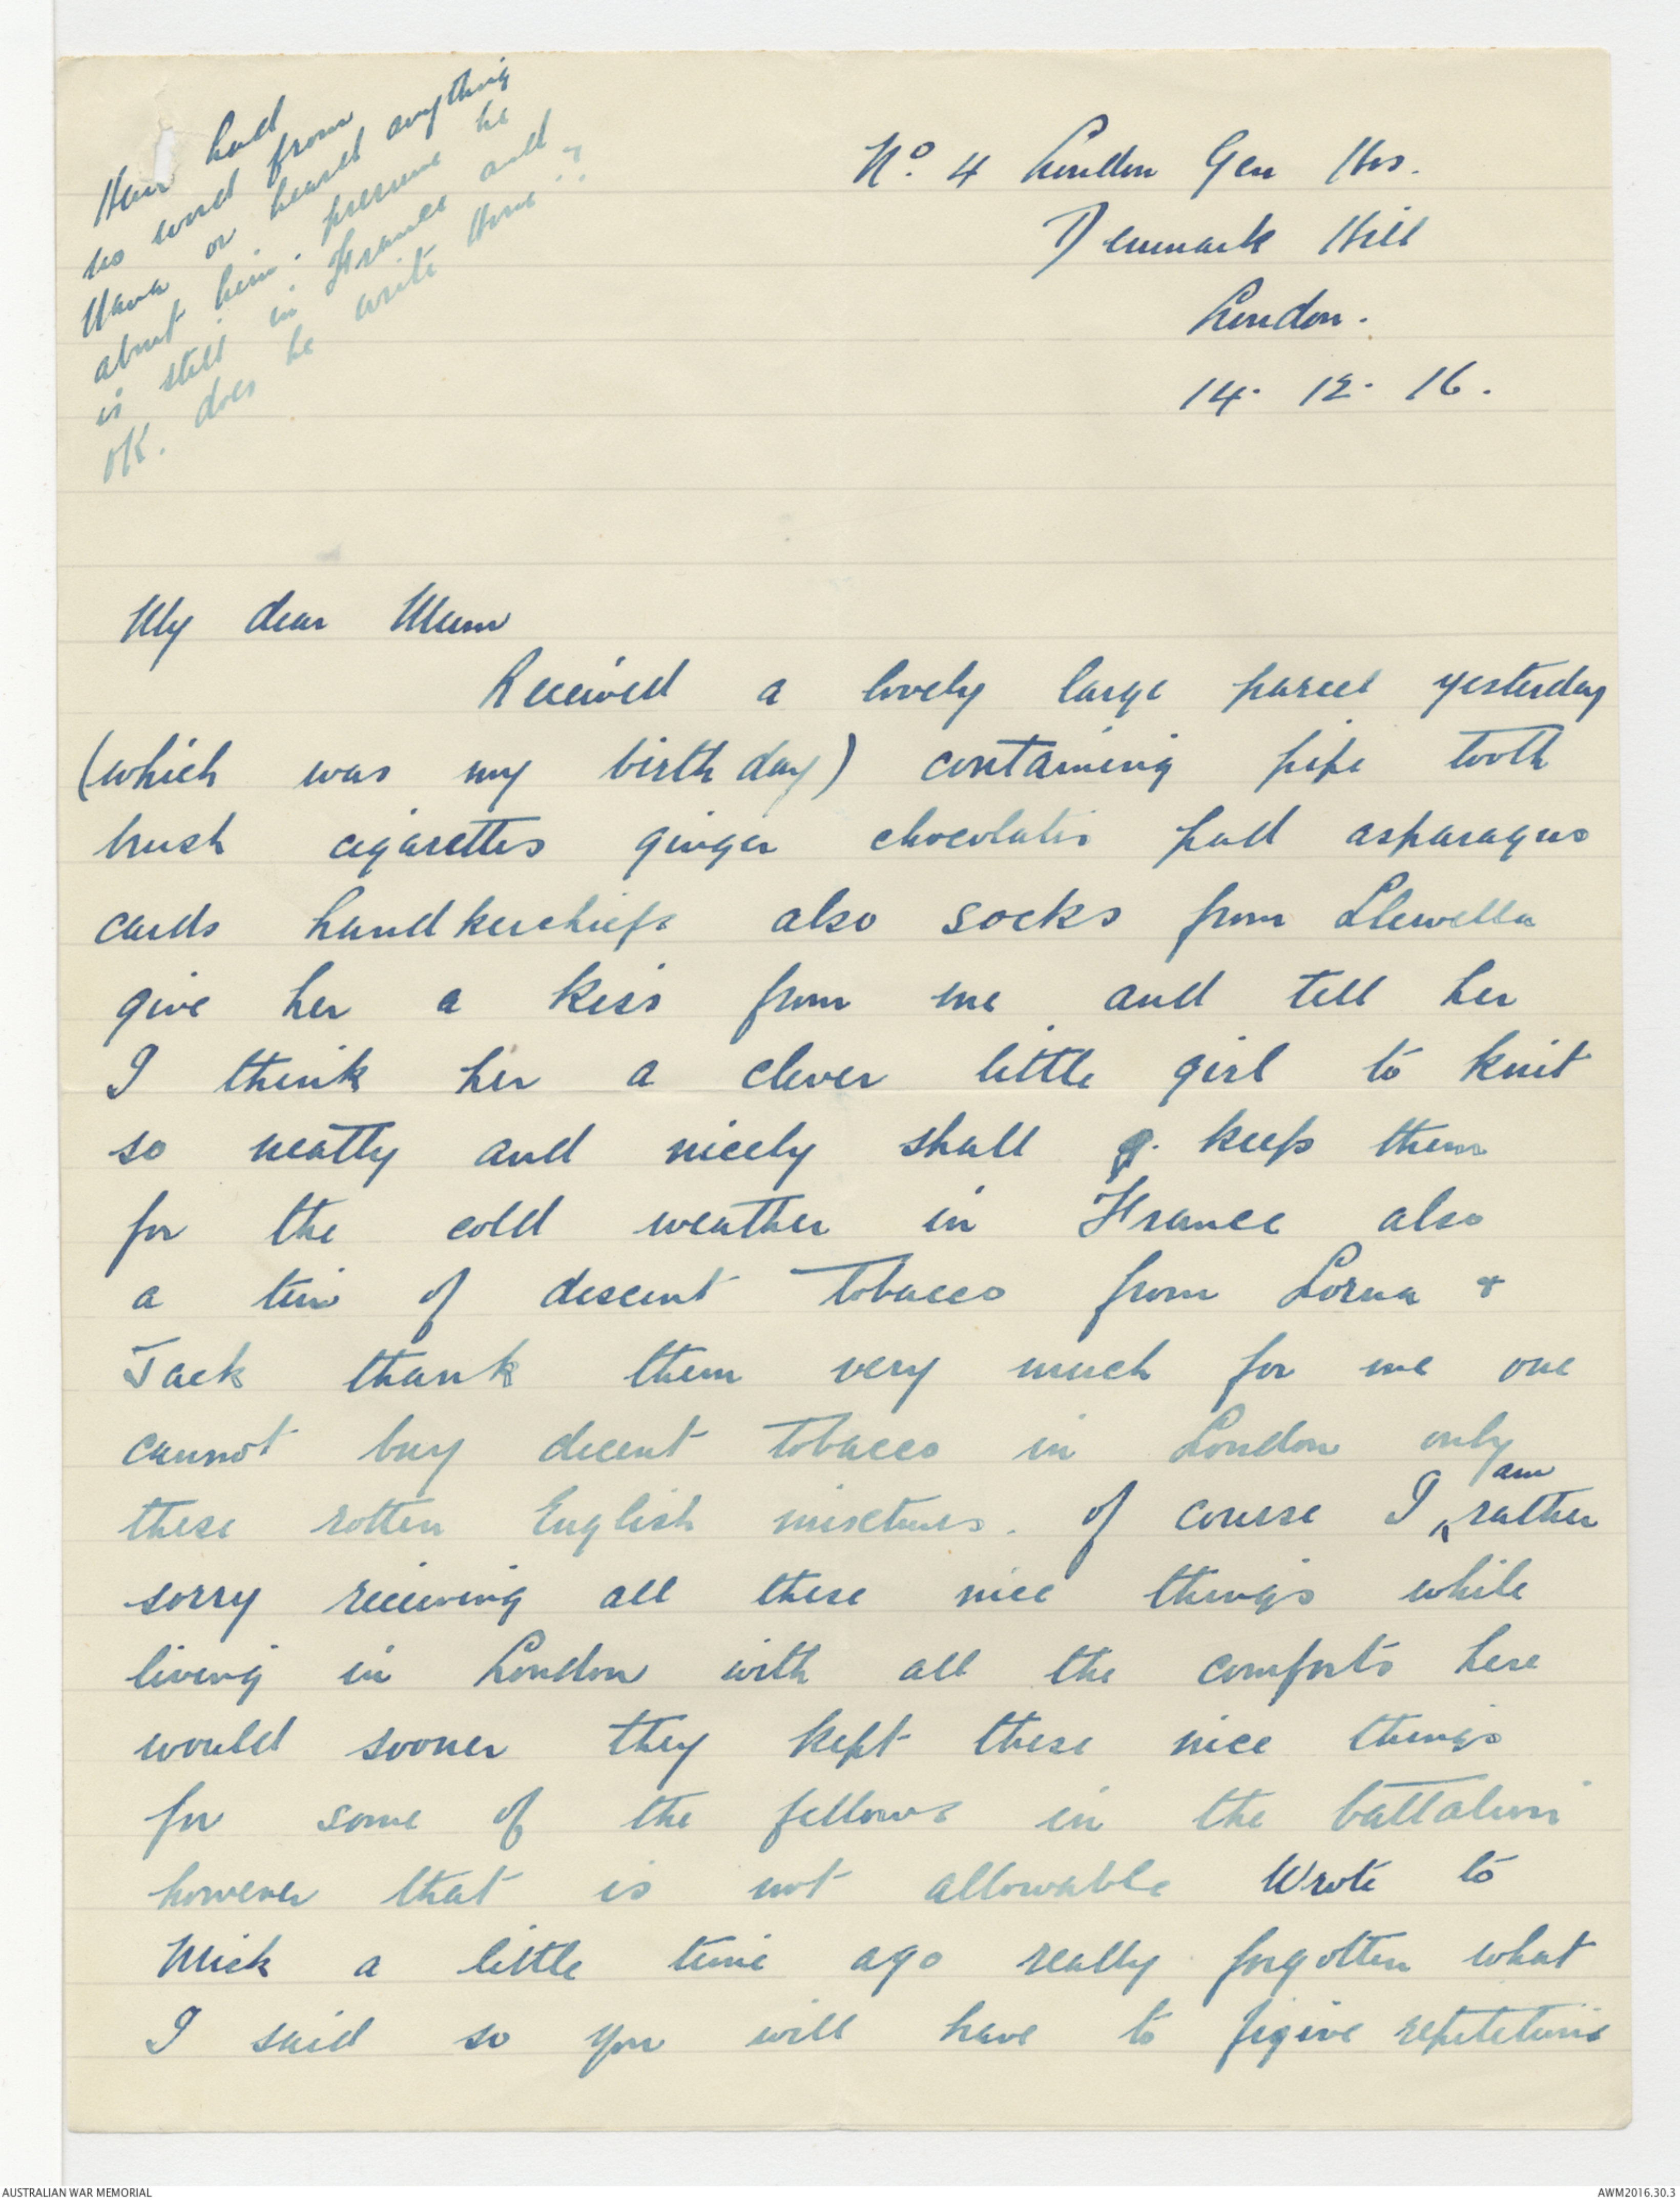 Have had
no word from
Mava or heard anything
about him. presume he
is still in France and
OK. does he write Home?
No. 4 London Gen Hos.
Denmark Hill
London.
14. 12. 16.
My dear Mum
Received a lovely large parcel yesterday
(which was my birthday) containing pipe tooth
brush cigarettes ginger chocolates pad asparagus
cards handkerchiefs also socks from Llewella
give her a kiss from me and tell her
I think her a clever little girl to knit
so neatly and nicely shall keep them
for the cold weather in France also
a tin of descent Tobacco from Lorna +
Jack thank them very much for me one
cannot buy decent Tobacco in London only
these rotten English mixctures. of course I am rather
sorry receiving all these nice things while
living in London with all the comforts here
would sooner they kept these nice things
for some of the fellows in the battalion
however that is not allowable Wrote to
Mick a little time ago really forgotten what
I said so you will have to forgive repetetions
AUSTRALIAN WAR MEMORIAL
AWM2016.30.3